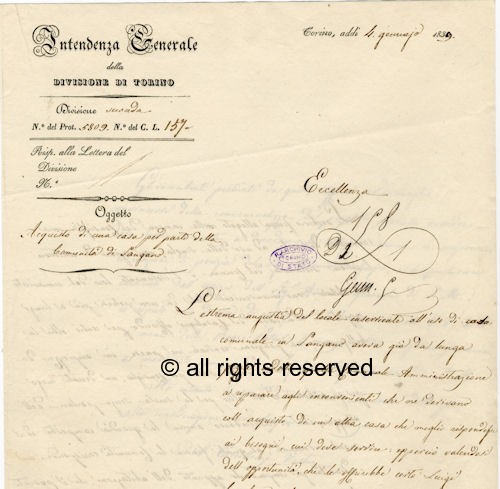 Intendenza Generale
della
DIVISIONE DI TORINO
Divisione seconda
N.° del Prot. 5809. N.° del C. L. 157-
Risp. alla Lettera del
Divisione
N.°
Oggetto
Acquisto di una casa per parte della
Comunità di Sangano
Torino, addì 4. gennajo 1839.
Eccellenza
158
22 1
Genn.
R. ARCHIVIO
TORINO
DI STATO
L'estrema angustia del locale inserviente all'uso di casa
comunale in Sangano aveva già da lunga
© all rights reserved
Amministrazione
a riparare agli inconvenienti che ne derivano
coll'acquisto di un'altra casa che meglio risponda
ai bisogni, cui deve servire; epperciò valendosi
dell'opportunità, che le offrirebbe certo Luigi